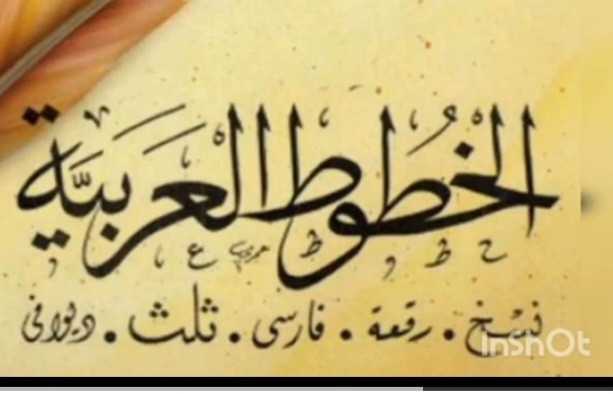 الخُطُوط العَرَبيَّة
نسْخ . رقعة . فارسى . ثلث . ديوانى
InShOt